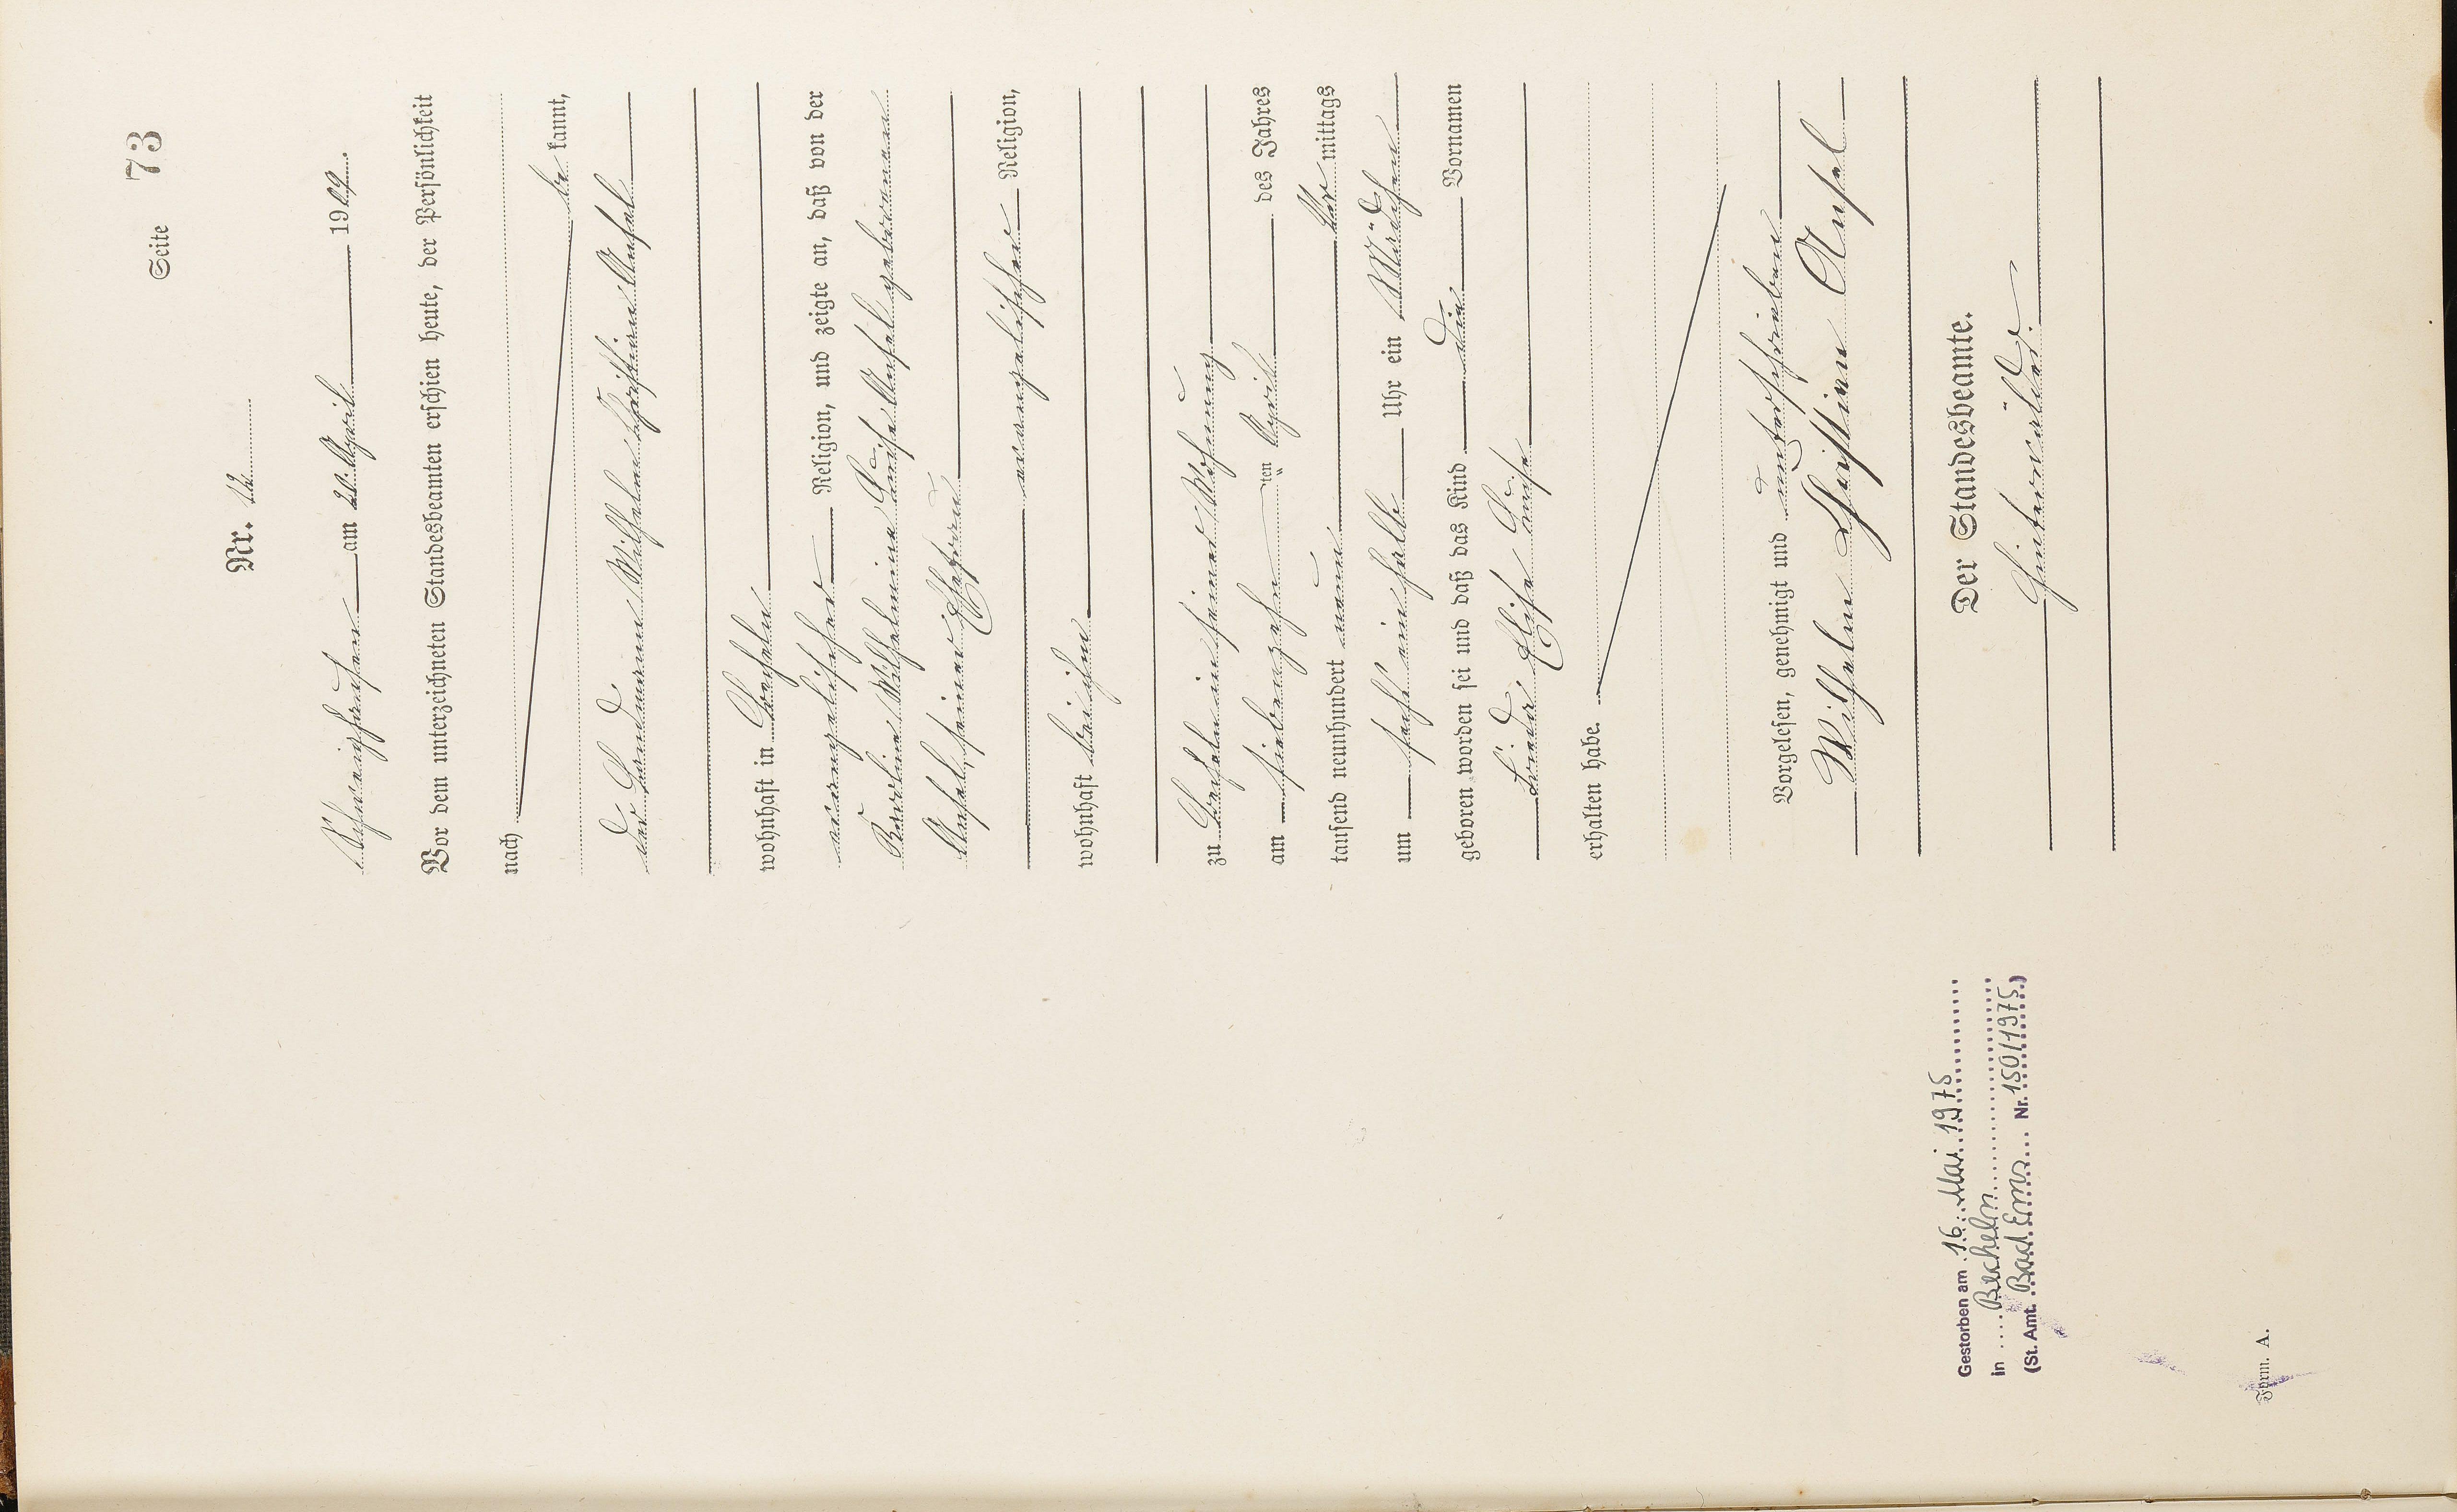 Seite 73
Nr. 12
Schweighausen am 20. April 1909.
Vor dem unterzeichneten Standesbeamten erschien heute, der Persönlichkeit
nach
be kannt,
der Landmann Wilhelm Christian Ansel
wohnhaft in Becheln
evangelischer Religion, und zeigte an, daß von der
Karoline Wilhelmine Luise Ansel geborenen
Ansel, seiner Ehefrau
evangelischer Religion,
wohnhaft bei ihm
zu Becheln in seiner Wohnung
am siebenzehn ten April des Jahres
tausend neunhundert neun Vor mittags
um sechs ein halb Uhr ein Mädchen
geboren worden sei und daß das Kind die Vornamen
Elise Luise
erhalten habe.
Vorgelesen, genehmigt und unterschrieben
Wilhelm Christian Ansel
Der Standesbeamte.
Hinterwälder.
Gestorben am 16. Mai 1975
in Becheln
(St. Amt. Bad Ems Nr. 150/1975)
Form. A.